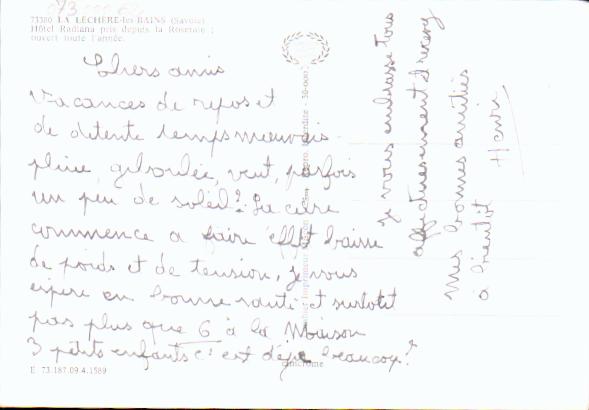 73380 LA LÉCHÈRE-les-BAINS (Savoie)
Hôtel Radiana pris depuis la Roseraie ;
ouvert toute l'année.
Chers amis
Vacances de repos et
de détente temps mauvais
pluie, giboulée, vent, parfois
un peu de soleil ? La cure
commence a faire effet baisse
de poids et de tension, je vous
espère en bonne santé et surtout
pas plus que 6 à la Maison
3 petits enfants c'est déjà beaucoup ?
je vous embrasse tous
affectueusement et recevez
mes bonnes amitiés
à bientôt
Henri
E 73.187.09.4.1589